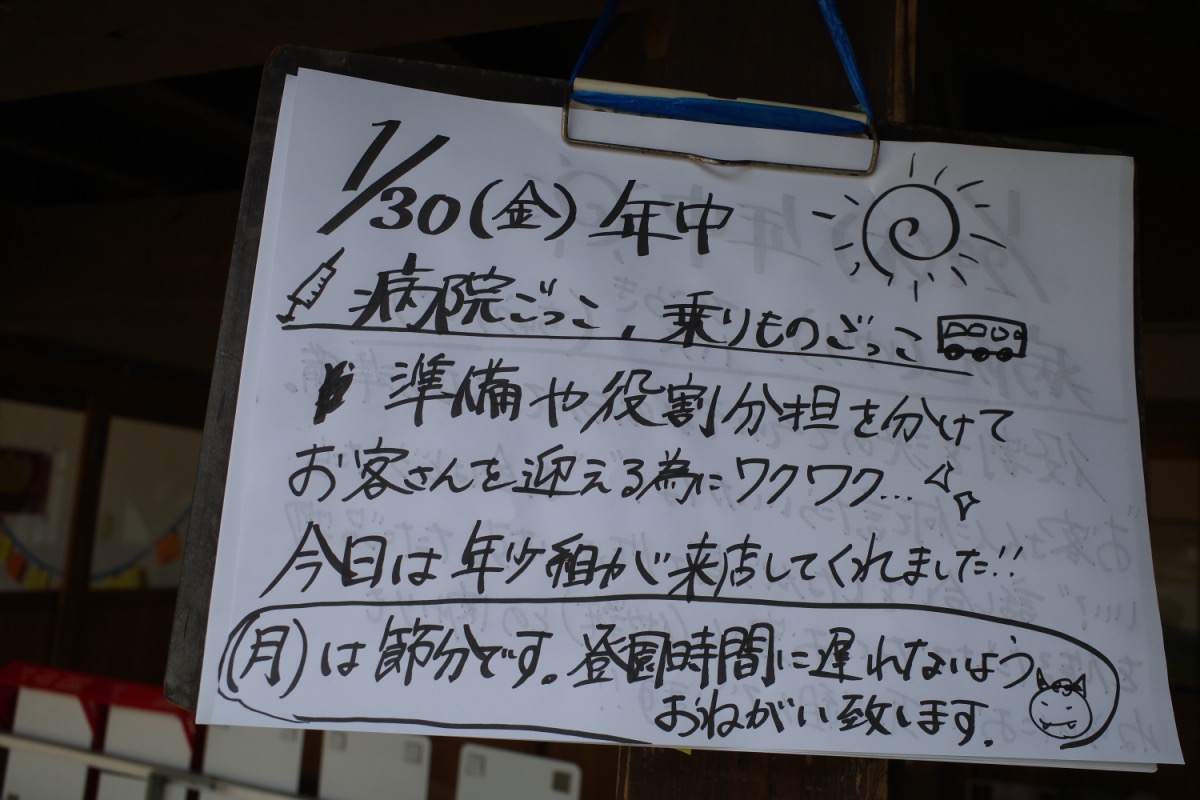 1/30(金)年中
病院ごっこ、乗りものごっこ
準備や役割分担を分けて
お客さんを迎える為にワクワク...
今日は年少組が来店してくれました!!
(月)は節分です。登園時間に遅れないよう
おねがい致します。